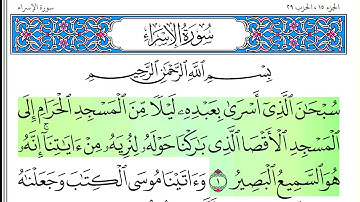 الجزء ١٥، الحزب ٢٩ سورة الإسراء
سُورَةُ الإِسْرَاءِ
بِسْمِ ٱللَّهِ ٱلرَّحْمَٰنِ ٱلرَّحِيمِ
سُبْحَٰنَ ٱلَّذِىٓ أَسْرَىٰ بِعَبْدِهِۦ لَيْلًا مِّنَ ٱلْمَسْجِدِ ٱلْحَرَامِ إِلَى
ٱلْمَسْجِدِ ٱلْأَقْصَا ٱلَّذِى بَٰرَكْنَا حَوْلَهُۥ لِنُرِيَهُۥ مِنْ ءَايَٰتِنَآ ۚ إِنَّهُۥ
هُوَ ٱلسَّمِيعُ ٱلْبَصِيرُ ١ وَءَاتَيْنَا مُوسَى ٱلْكِتَٰبَ وَجَعَلْنَٰهُ